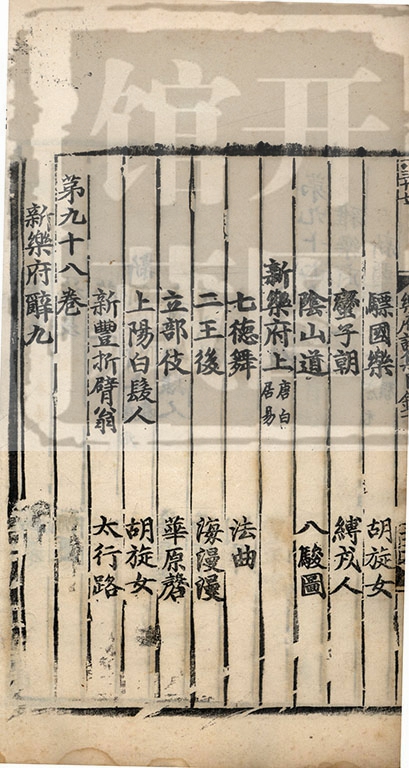 驃國樂 胡旋女
蠻子朝 縛戎人
陰山道 八駿圖
新樂府上 唐白居易
七德舞 法曲
二王後 海漫漫
立部伎 華原磬
上陽白髮人 胡旋女
新豐折臂翁 太行路
第九十八卷
新樂府辭九